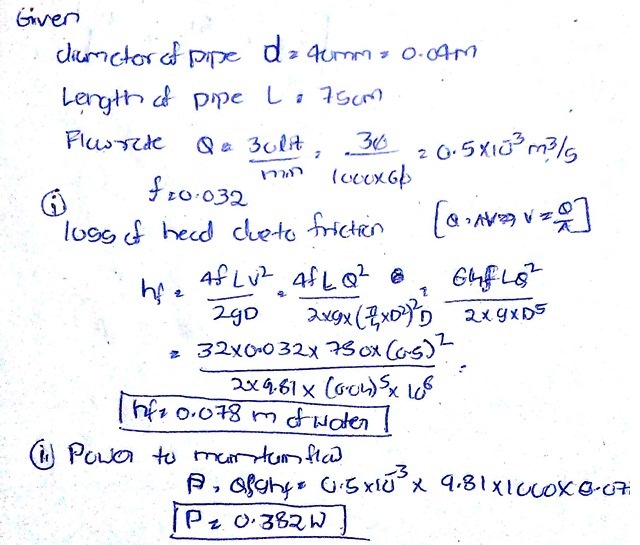 Given
diameter of pipe d = 40mm = 0.04m
Length of pipe L = 75cm
Flow rate Q = 30lit/min = 30/(1000×60) = 0.5×10^-3 m^3/s
f = 0.032
(i) loss of head due to friction [Q = AV => V = Q/A]
hf = 4fLV^2/2gD = 4fLQ^2/(2×g×(π/4×D^2)^2 D) = 64fLQ^2/(2×g×D^5)
= 32×0.032×750×(0.5)^2/(2×9.81×(0.04)^5×10^8) =
hf = 0.078 m of water
(ii) Power to maintain flow
P = Qρghf = 0.5×10^-3 × 9.81×1000×0.07
P = 0.382W